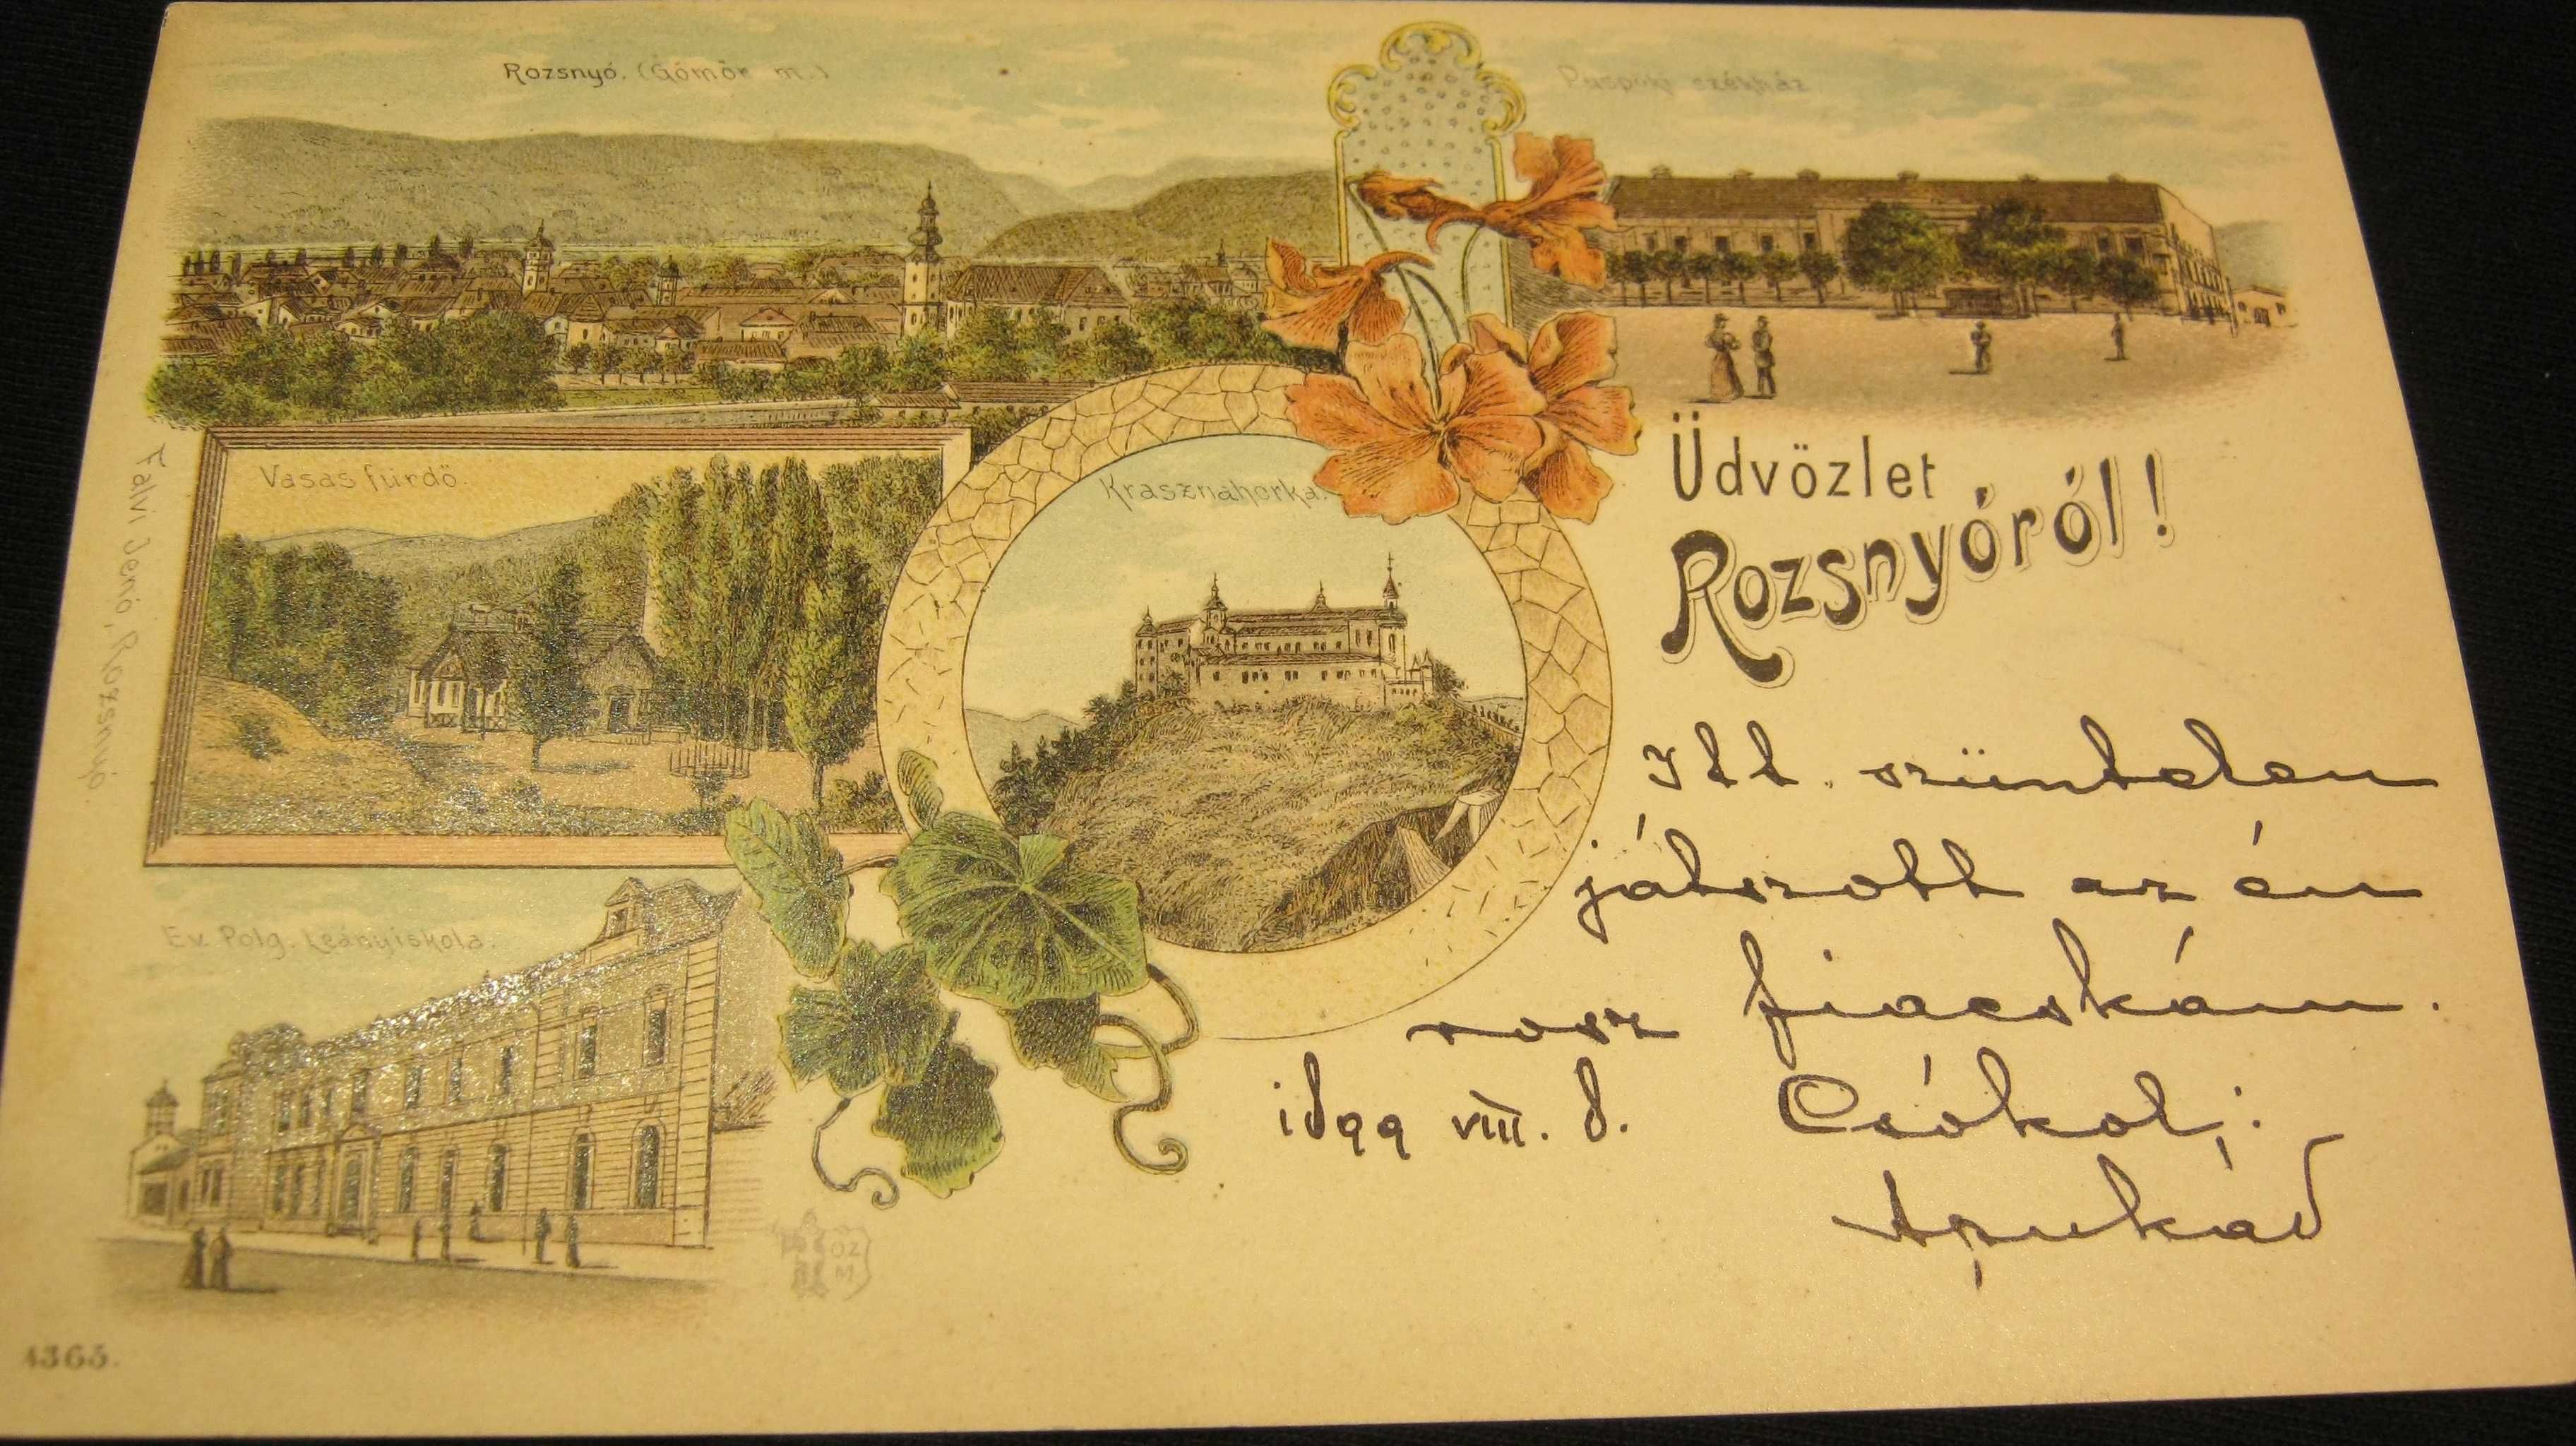 Rozsnyó. (Gömör m.)
Püspöki székház
Vasas fürdő.
Krasznahorka.
Üdvözlet
Rozsnyóról!
Falvi Jenő, Rozsnyó.
Ev. Polg. Leányiskola.
Itt szüntelen
játszott az én
rosz fiacskám.
1899 VIII. 8. Csókol:
Apukád
ÖZ
M
4365.